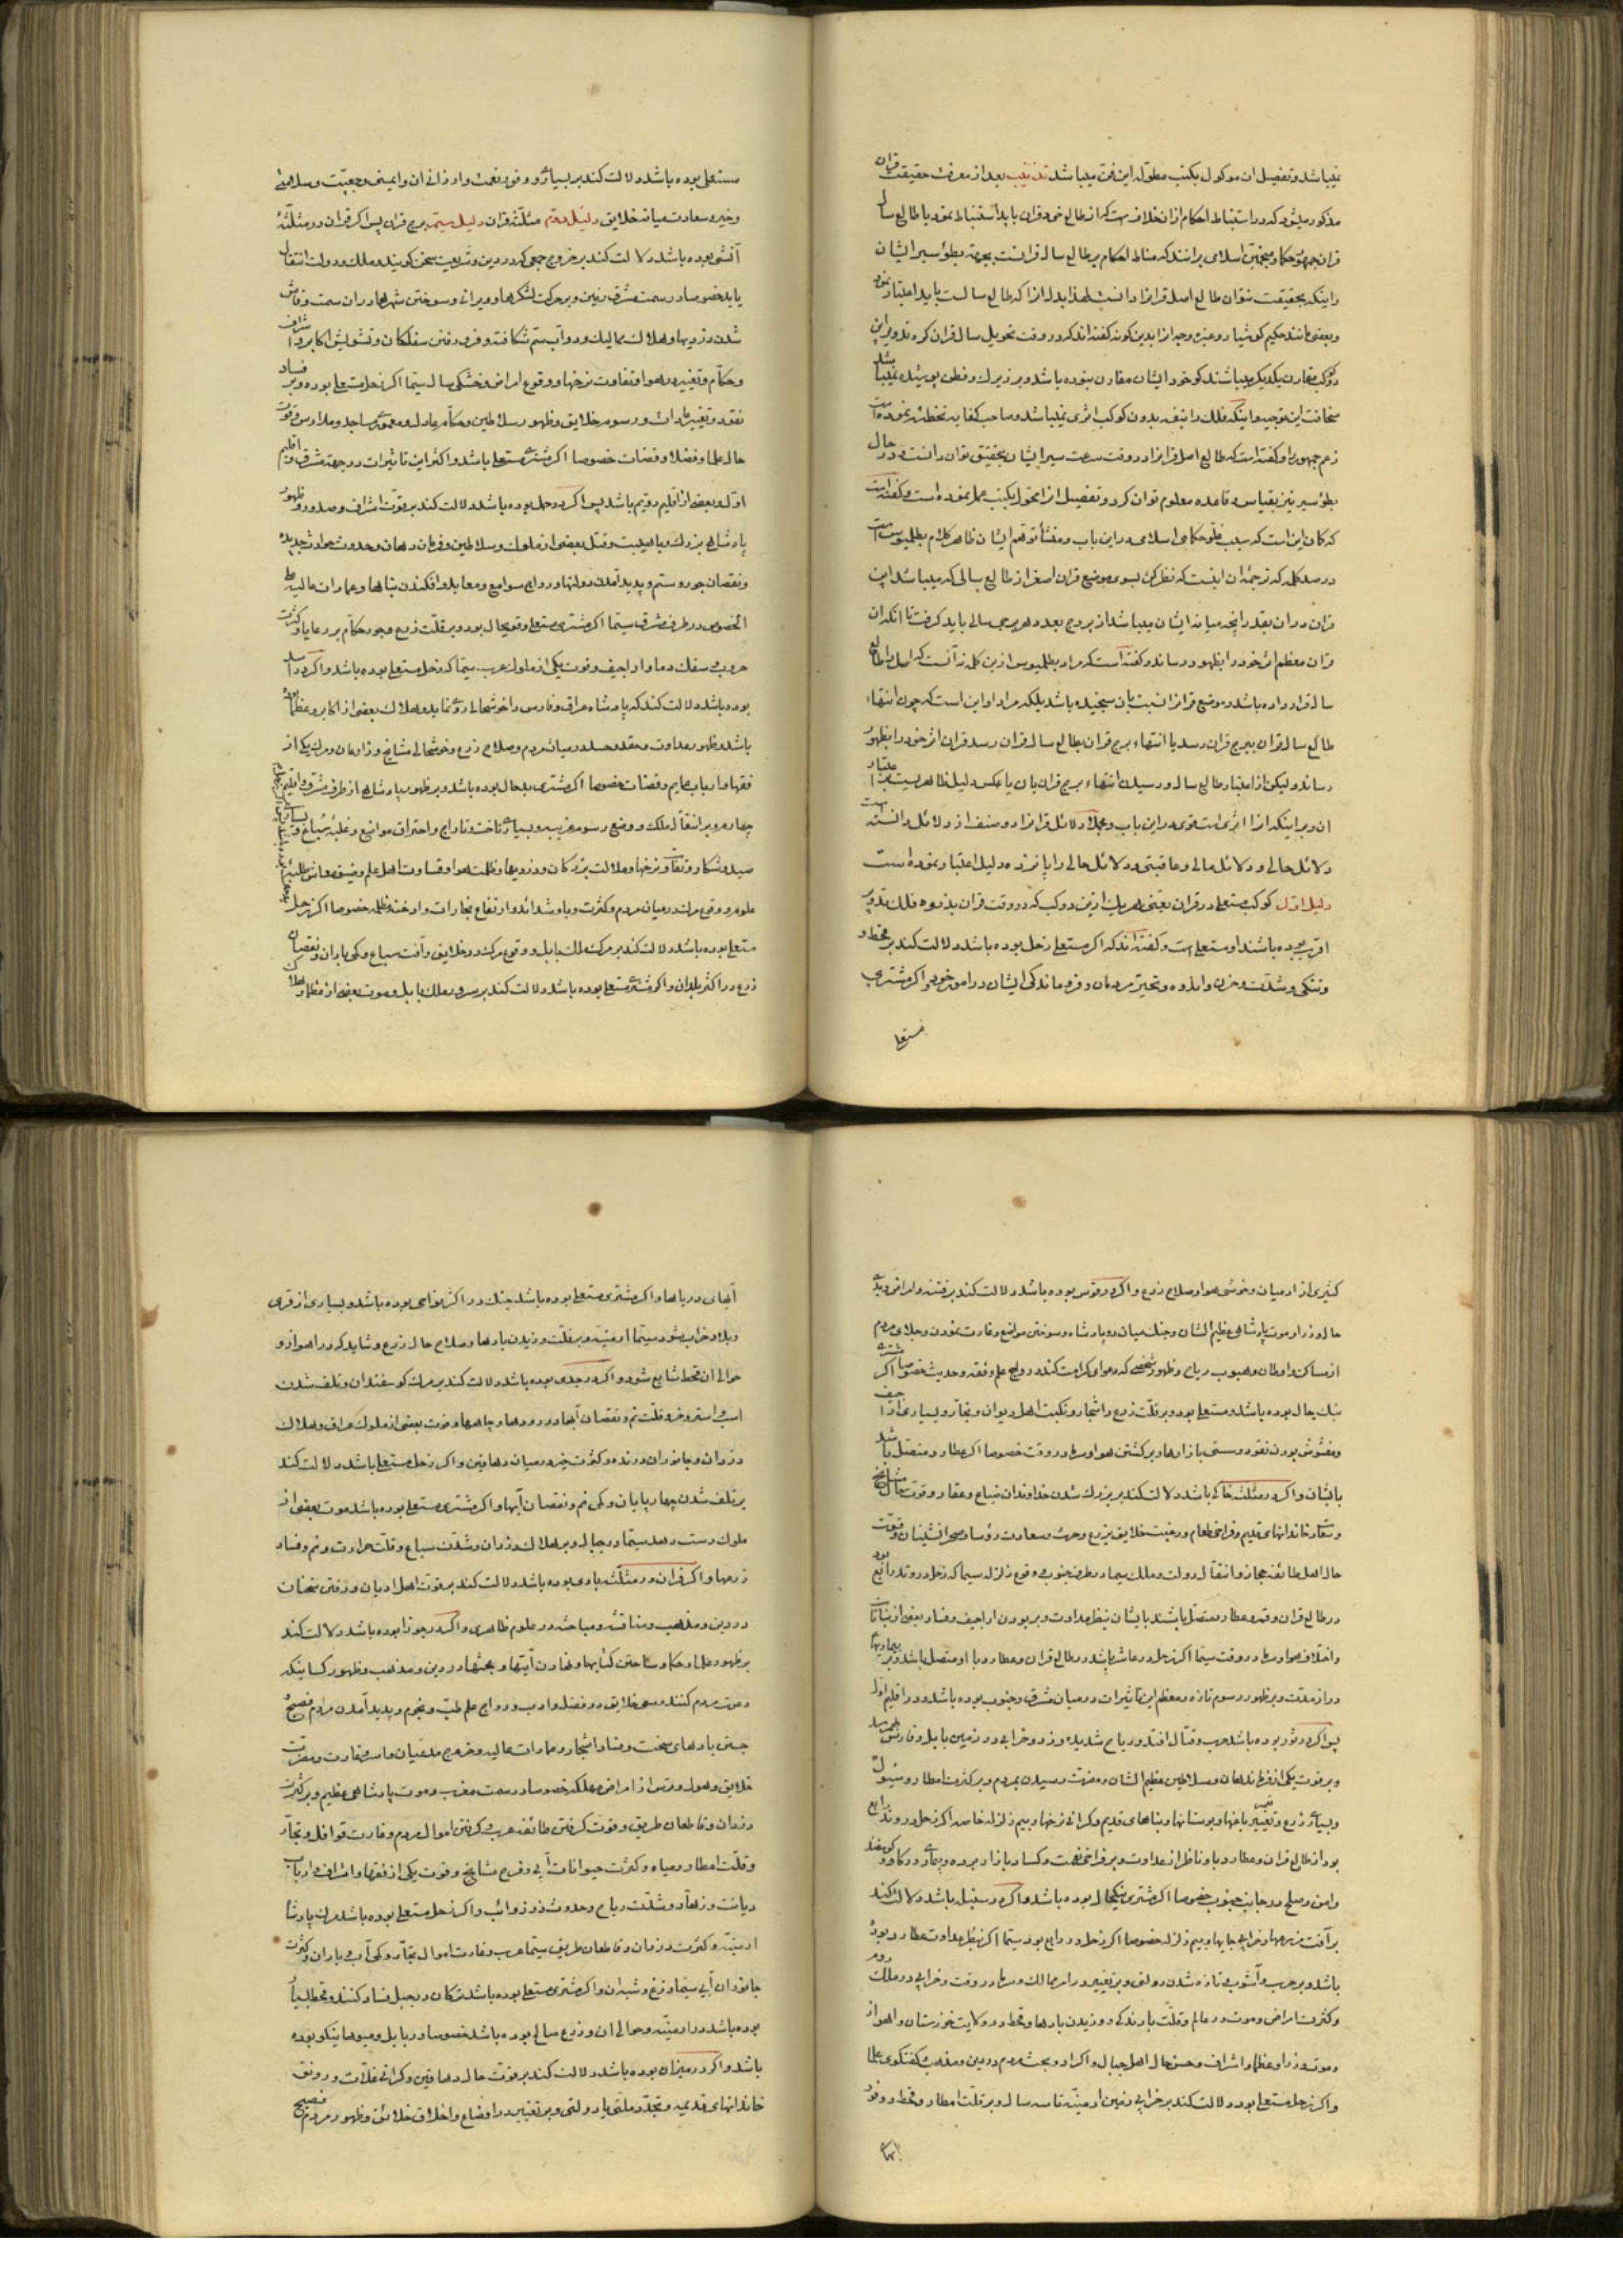 نمیباشد و تفصیل ان موکول بکتب مطوله این فن میباشد تذنیب بعد از معرفت حقیقت قران
مذکور میشود که در استنباط احکام ازان خلاف است که از طالع خود قران باید استنباط نمود یا طالع سال
قران جمهور حکما و منجمین اسلامی برانند که مناط احکام بر طالع سال قرانست بجهة بطؤ سیر ایشان
و اینکه بحقیقت نتوان طالع اصل قرانرا دانست لهذا بدل انرا که طالع سالست باید اعتبار نمود
و بعضی مانند حکیم کوشیار و غیره وجه انرا بدین کونه کفته اند که در وقت تحویل سال قران کرده
دو کوکب مقارن یکدیکر میباشند کو خود ایشان مقارن نبوده باشد و بر زیرک و فطن پوشیده نمیباشد
سخافت این توجیه و اینکه فلک را بنفسه بدون کوکب اثری نمیباشد و صاحب کفایه تخطئه نموده است
زعم جمهور را و کفته است که طالع اصل قرانرا در وقت سرعت سیر ایشان بتحقیق توان دانست و در حال
بطؤ سیر نیز بقیاس و قاعده معلوم توان کرد و تفصیل انرا محول بکتب عمل نموده است و کفته است
که کان این است که سبب غلو حکمای اسلامی در این باب و منشأ توهم ایشان ظاهر کلام بطلمیوس است
در صد کلمه که ترجمهٔ ان اینست که نظر کن بسوی موضع قران اصغر از طالع سالی که میباشد این
قران دران بقدر انچه میانه ایشان میباشد از بروج بعدد هر برجی سالی باید کرفت تا انکه ان
قران معظم اثر خود را بظهور رساند و کفته است که مراد بطلمیوس ازین کلمه نه آنست که اصل را طالع
سال قرار داده باشد و موضع قرانرا نسبت بان سنجیده باشد بلکه مراد او این است که چون انتهاء
طالع سال قران ببرج قران رسد یا انتهاء برج قران بطالع سال قران رسد قران اثر خود را بظهور
رساند و لیکن از اعتبار طالع سال و رسیدن انتهاء برج قران بان یا عکس دلیل ظاهریست بر اعتبار
ان و بر اینکه انرا اثری است قوی در این باب و مجملا دلائل قرانرا دو صنف از دلائل دانسته است
دلائل حالی و دلائل مالی و عاقبتی و دلائل حالی را پانزده دلیل اعتبار نموده است
دلیل اول کوکب مستعلی در قران یعنی هر یک ازین دو کوکب که در وقت قران بذروه فلک تدویر
اقرب بوده باشند او مستعلی است و کفته اند که اکر مستعلی زحل بوده باشد دلالت کند بر قحط و
و تنکی و شدت و حزن و اندوه و تحیر مردمان و فروماندکی ایشان در امور خود و اکر مشتری
مستعلی
مستعلی بوده باشد دلالت کند بر بسیاری و وفور نعمت و ارزانی ان و ایمنی و جمعیت و سلامتی
و خیر و سعادت میانه خلایق دلیل دویم مثلثهٔ قران دلیل سیم برج قران پس اکر قران در مثلثهٔ
آتشی بوده باشد دلالت کند بر خروج جمعی که در دین و شریعت سخن کویند و ملک و دولت انتقال
یابد خصوصا در سمت مشرق زمین و بر حرکت لشکرها و ویرانی و سوختن شهرها دران سمت و فاش
شدن دزدیها و هلاک ممالیک و دواب سم شکافته و فرو رفتن سفلکان و تشویش اکابر و اشراف
و حکام و تغییر در هوا و تفاوت نرخها و وقوع امراض و خشکی سال سیما اکر زحل مستعلی بوده و بر فساد
نقود و تغییر عادات و رسوم خلایق و ظهور سلاطین و حکام عادل و معموری مساجد و مدارس و قوت
حال علما و فضلا و قضات خصوصا اکر مشتری مستعلی باشد و اکثر این تاثیرات در جهة مشرق و اقلیم
اول و بعضی از اقلیم دویم باشد پس اکر در حمل بوده باشد دلالت کند بر قوت اشراف و صدور و ظهور
پادشاهی بزرک و با هیبت و قتل بعضی از ملوک و سلاطین و فرمان دهان و حدوث حوادث جدیده
و نقصان جور و ستم و پدید آمدن دولتها و رواج صوامع و معابد و افکندن بناها و عمارات عالیه علی
الخصوص در طرف مشرق سیما اکر مشتری مستعلی و قویحال بود و بر قلت زرع و جور حکام بر رعایا و کثرت
حروب و سفک دما و اراجیف و فوت یکی از ملوک عرب سیما که زحل مستعلی بوده باشد و اکر در اسد
بوده باشد دلالت کند که پادشاه عراق و فارس را خوشحالی روی نماید و هلاک بعضی از اکابر و عظما
باشد و ظهور عداوت و حقد و حسد در میان مردم و صلاح زرع و خوشحالی مشایخ و زارعان و مرک یکی از
فقها و ارباب عمایم و قضات خصوصا اکر مشتری بدحال بوده باشد و بر ظهور پادشاهی از طرف مشرق و اقلیم
چهارم و بر انتقال ملک و وضع رسوم غریبه و بسیاری تاخت و تاراج و احتراق مواضع و غلبهٔ سباع و
صید و شکار و تفاوت نرخها و ملالت بزرکان و دزدیها و ظلمت هوا و قساوت اهل علم و فسق
علوم و وقوع مرک در میان مردم و کثرت وبا و شداید و ارتفاع بخارات و ادخنه مظلمه خصوصا اکر زحل
مستعلی بوده باشد دلالت کند بر مرک ملک بابل و وقوع مرک در خلایق و آفت سباع و کمی باران و نقصان
زرع در اکثر بلدان و اکر مشتری مستعلی بوده باشد دلالت کند بر سرور ملک بابل و موت بعضی از عظما و هلاک
کثیری از ادمیان و خوشی هوا و صلاح زرع و اکر در قوس بوده باشد دلالت کند بر فتنه و امراض و بدی
حال وزرا و موت پادشاهی عظیم الشان و جنک میان دو پادشاه و سوختن مواضع و غارت نمودن و جلای مردم
از مساکن و اوطان و هبوب ریاح و ظهور شخصی که دعوای کرامت کند و رواج علم و فقه و حدیث خصوصا اکر مشتری
نیک حال بوده باشد و مستعلی بود و بر قلت زرع و اشجار و نکبت اهل دیوان و تجار و بسیاری اراجیف
و مغشوش بودن نقود و سستی بازارها و بر کشتن هوا و سرما در وقت خصوصا اکر عطارد متصل باشد
بایشان و اکر در مثلثهٔ خاکی باشد دلالت کند بر بزرک شدن خداوندان ضیاع و عقار و قوت حال مشایخ
و خاندانهای قدیم و فراخی طعام و رغبت خلایق بزرع و حرث و سعادت رؤسا و صحرانشینان و قوت
حال اهل طائف و حجاز و انتقال دولت و ملک سیما در طرف جنوب و وقوع زلزله سیما که زحل در وتد رابع بود
در طالع قران و قمر و عطارد متصل باشند بایشان بنظر عداوت و بر بودن اراجیف و فساد بعضی از نباتات
و اختلاف هوا و سرما در وقت سیما اکر زحل در عاشر باشد در طالع قران و عطارد با او متصل باشد و بر بیماریهای
دراز مدت و بر ظهور رسوم تازه و معظم این تاثیرات در میان مشرق و جنوب بوده باشد و در اقلیم اول
پس اکر در ثور بوده باشد حرب و قتال افتد و ریاح شدیده وزد و خرابی در زمین بابل و فارس بهم رسد
و بر فوت یکی از فرماندهان و سلاطین عظیم الشان و مضرت رسیدن بمردم و بر کثرت امطار و سیول
و بسیاری زرع و تغییر باغها و بوستانها و بناهای قدیم و کرانی نرخها و بیم زلزله خاصه اکر زحل در وتد رابع
بود از طالع قران و عطارد با و ناظر از عداوت و بر فراخی نعمت و کساد بازار برده و بیماری در کاو و کوسفند
و امن و صلح در جانب جنوب خصوصا اکر مشتری نیکحال بوده باشد و اکر در سنبله باشد دلالت کند
بر آفت مزرعها و خرابی جایها و بیم زلزله خصوصا اکر زحل در رابع بود سیما اکر بنظر عداوت عطارد بوده
باشد و بر حرب و آشوب تازه شدن دولتی و بر تغییر در امر ممالک و سرما در وقت و خرابی در مملکت روم
و کثرت امراض و موت در عالم و قلت بارندکی و وزیدن بادها و قحط در ولایت خوزستان و اهواز
و موت وزرا و عظما و اشراف و حسن حال اهل جبال و اکراد و بحث مردم در دین و مذهب و کفتکوی علما
و اکر زحل مستعلی بود دلالت کند بر خرابی زمین ارمنیه تا سه سال و بر قلت امطار و قحط و وفور
آبهای دریاها و اکر مشتری مستعلی بوده باشد جنک در اکثر نواحی بوده باشد و بسیاری از قری
و بلاد خراب شود سیما ارمنیه و بر قلت وزیدن بادها و صلاح حال زرع و شاید که در اهواز و
حوالی ان قحط شایع شود و اکر در جدی بوده باشد دلالت کند بر مرک کوسفندان و تلف شدن
اسب و استر و خر و قلت نم و نقصان آبها در رودها و چاهها و فوت بعضی از ملوک عراق و هلاک
دزدان و جانوران درنده و کثرت خیر در میان دهاقین و اکر زحل مستعلی باشد دلالت کند
بر تلف شدن چهارپایان و کمی نم و نقصان آبها و اکر مشتری مستعلی بوده باشد موت بعضی از
ملوک دست دهد سیما در جبال و بر هلاک دزدان و شدت سباع و قلت حرارت و نم و فساد
زرعها و اکر قران در مثلثهٔ بادی بوده باشد دلالت کند بر قوت اهل ادیان و رفتن سخنان
در دین و مذهب و مناقشه و مباحثه در علوم ظاهری و اکر در جوزا بوده باشد دلالت کند
بر ظهور علما و حکما و ساختن کتابها و نهادن آیتها و بحثها در دین و مذهب و ظهور کسانیکه
دعوت مردم کنند و سعی خلایق در فضل و ادب و رواج علم طب و نجوم و پدید آمدن مردم فصیح
جستن بادهای سخت و فساد اشجار و عمارات عالیه و خروج مدعیان و اسر و غارت و مضرت
خلایق و هول و ترس از امراض مهلکه خصوصا در سمت مغرب و موت پادشاهی عظیم و بر کثرت
دزدان و قاطعان طریق و قوت کرفتن طائفه عرب و کرفتن اموال مردم و غارت قوافل و تجار
و قلت امطار و میاه و کثرت حیوانات آبی و فرح مشایخ و فوت یکی از فقها و اشراف و ارباب
دیانت و زهاد و شدت ریاح و حدوث ذو ذوائب و اکر زحل مستعلی بوده باشد مرک پادشاه
ارمنیه و کثرت دزدان و قاطعان طریق سیما عرب و غارت اموال تجار و کمی آب و باران و کثرت
جانوران آبی سیما وزغ و شبه ان و اکر مشتری مستعلی بوده باشد ترکان در جبل فساد کنند و قحط
بوده باشد در ارمنیه و حوالی ان و زرع سالم بوده باشد خصوصا در بابل و میوها نیکو بوده
باشد و اکر در میزان بوده باشد دلالت کند بر قوت حال دهاقین و کرانی غلات و رونق
خاندانهای قدیمه و تجدد ملتی یا دولتی و بر تغییر در اوضاع و اخلاق خلائق و ظهور مردم فصیح